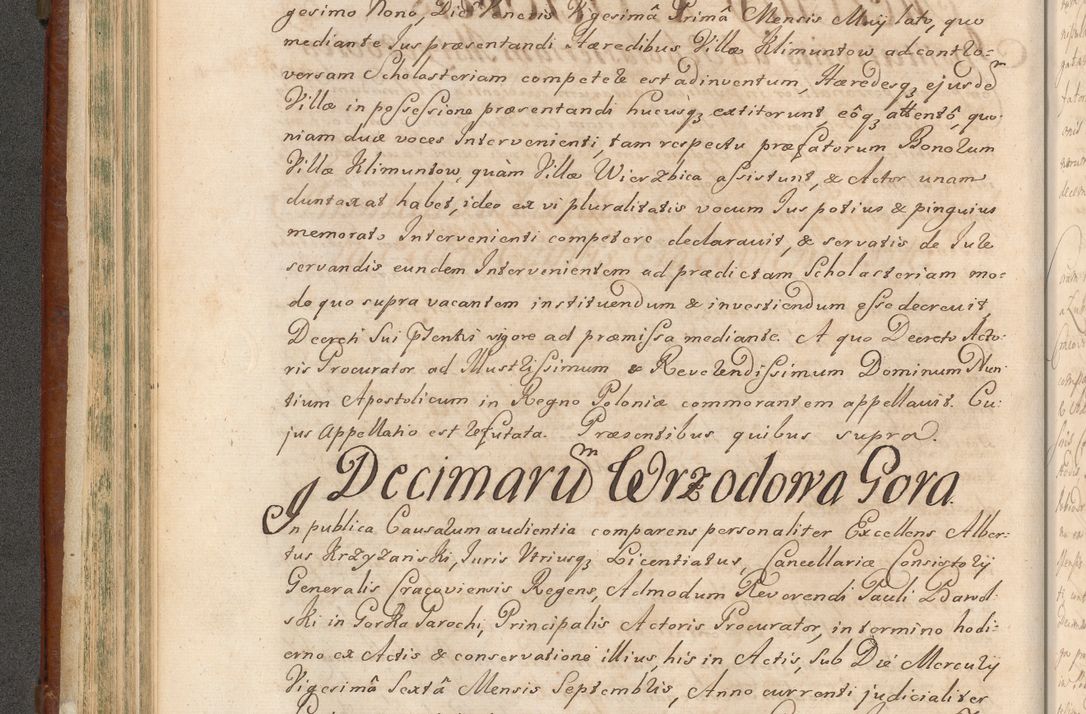 gesimo Nono, Die Veneris Vigesimâ Primâ Mensis Maij lato, quo
mediante Jus præsentandi Hæredibus Villæ Klimuntow ad contro=
versam Scholasteriam competere est adinventum, Hæredesq₃ ejusdem
Villæ in possessione præsentandi hucusq₃ extiterunt eôq₃ attentô, quo=
niam duæ voces Intervenienti, tam respectu præfatorum Bonorum
Villæ Klimuntow, quàm Villæ Wierzbica assistunt, & Actor unam
duntaxat habet, ideo ex vi pluralitatis vocum Jus potius & pinguius
memorato Intervenienti competere declarauit, & servatis de Jure
servandis eundem Intervenientem ad prædictam Scholasteriam mo=
do quo supra vacantem instituendum & investiendum esse decreuit,
Decreti sui pñtentis vigore ad præmissa mediante. A quo Decreto Acto=
ris Procurator ad Illustrissimum & Reverendissimum Dominum Nun=
tium Apostolicum in Regno Poloniæ commorantem appellavit. Cu=
jus Appellatio est refutata. Præsentibus quibus supra.
Decimarum Wrzodowa Gora.
In publica Causarum audientia comparens personaliter Excellens Alber=
tus Krzyzanski, Juris Vtriusq₃ Licentiatus, Cancellariæ Consistorij
Generalis Cracoviensis Regens, Admodum Reverendi Pauli
ski in Gorka Parochi, Principalis Actoris Procurator, in termino hodi=
erno ex Actis & conservatione illius, his in Actis, sub Die Mercurij
Vigesimâ Sextâ Mensis Septembris, Anno currenti judicialiter